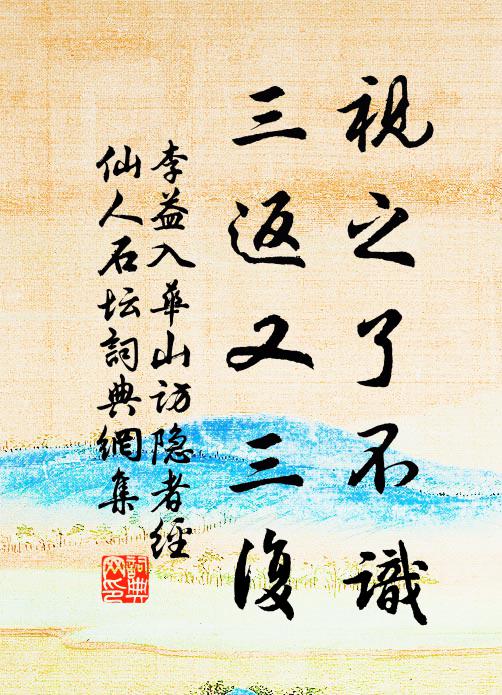 視之了不識
三返又三復
李益入華山访隐者經
仙人石坛詞典網集
詞典
网印